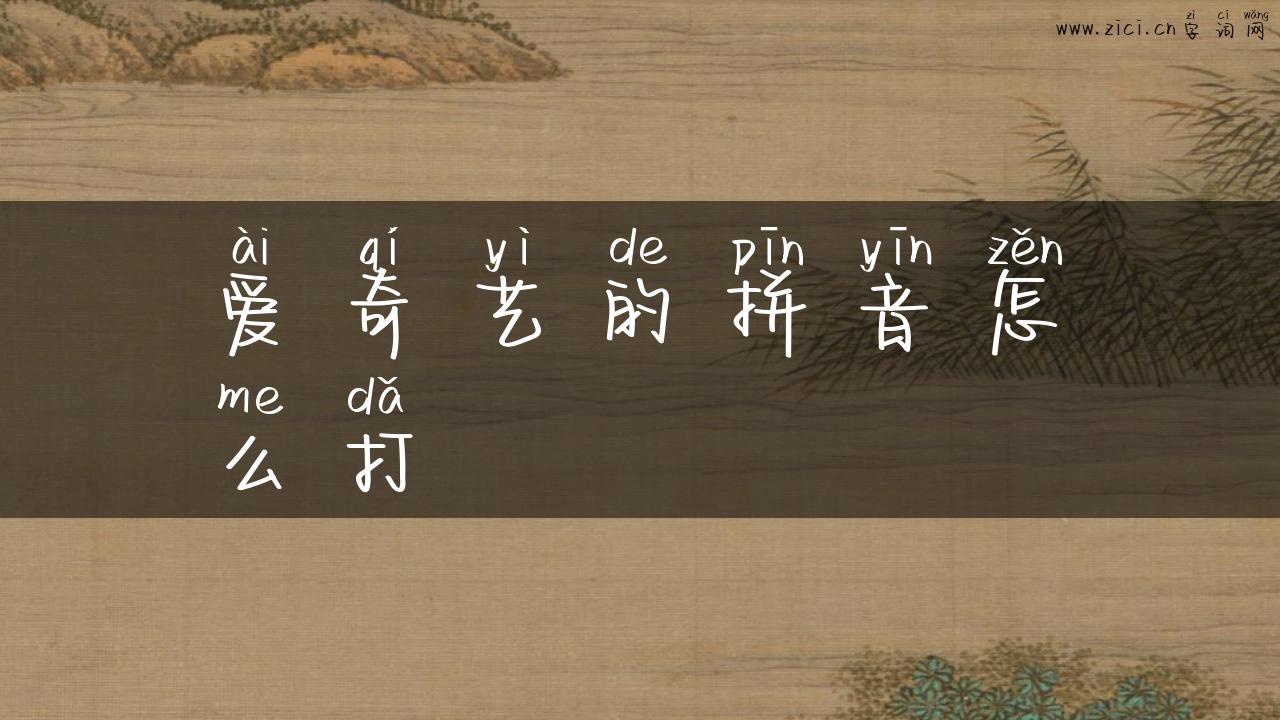 zì cí wǎng
www.zici.cn 字 词 网
ài qí yì de pīn yīn zěn
爱 奇 艺 的 拼 音 怎
me dǎ
么 打